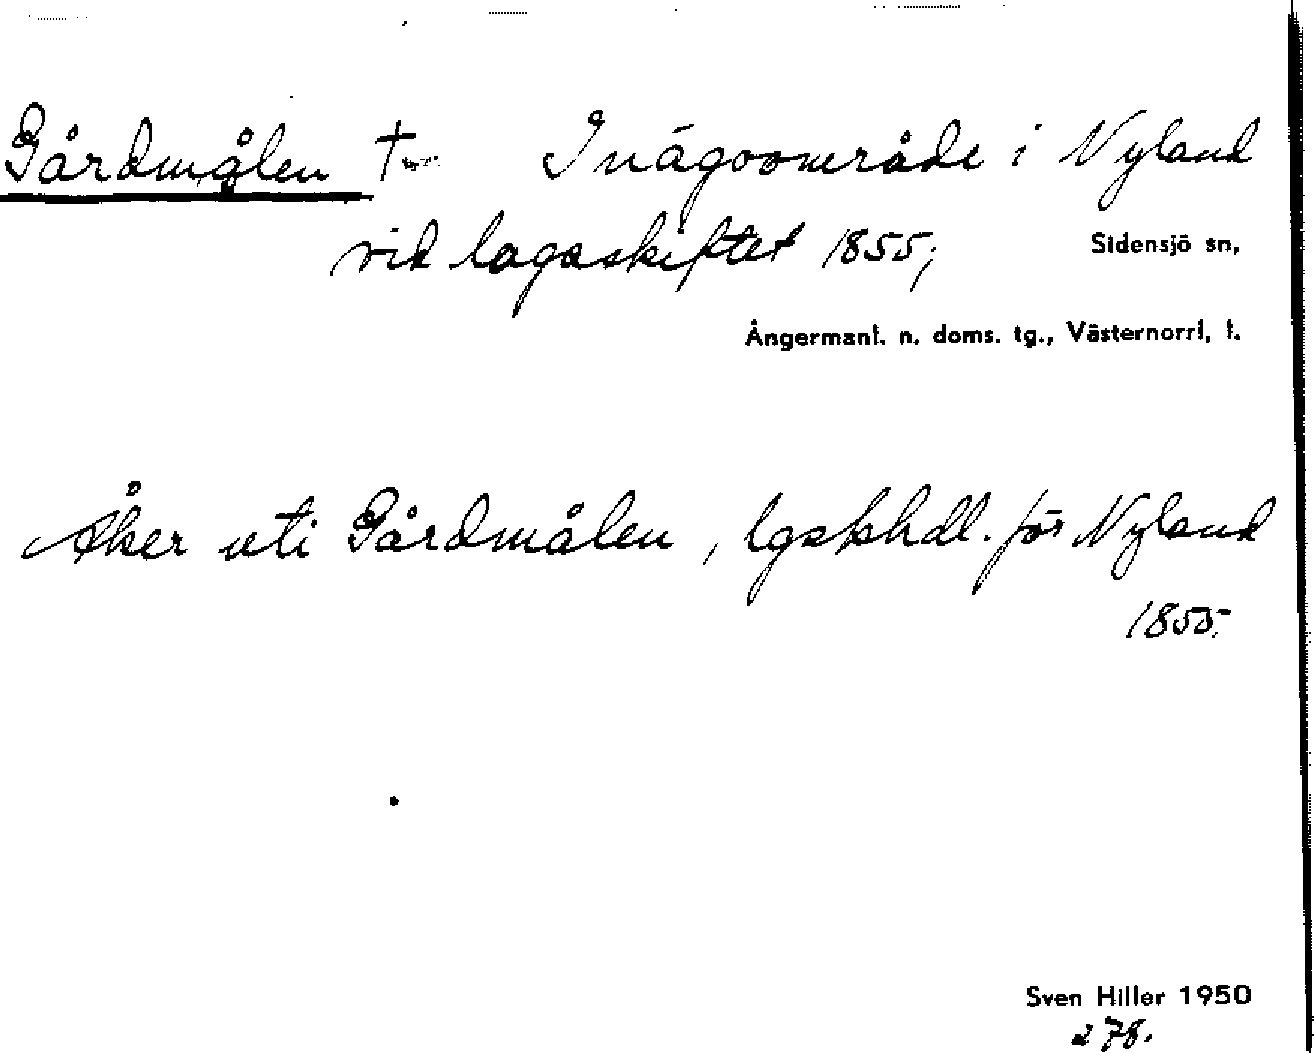 Gårdmålen † Inägoområde i Nyland
vid lagaskiftet 1855;
Sidensjö sn,
Ångermanl. n. doms. tg., Västernorrl. l.
Åker uti Gårdmålen, lgskhdl. för Nyland
1855.
Sven Hiller 1950
278.